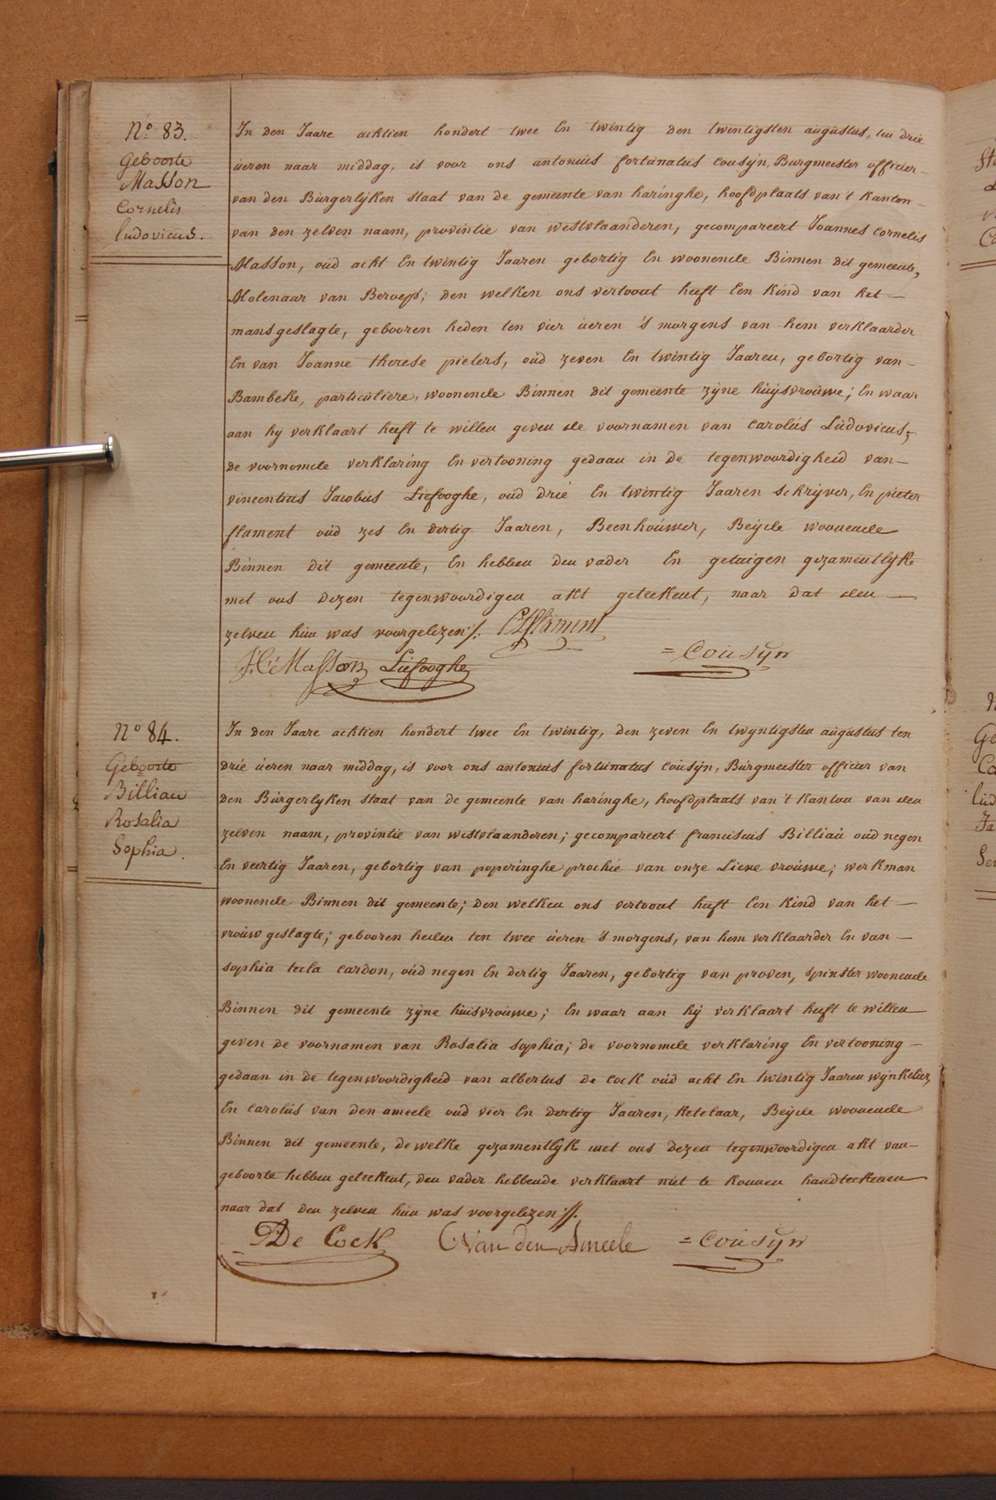 N.º 83.
Geboorte
Masson
Cornelis
Ludovicus.
In den Jaare achtien hondert twee En twintig den twintigsten augustus, ten drie
üeren naar middag, is voor ons antonius fortunatus Cousÿn, Burgmeester officier
van den Burgerlyken staat van de gemeente van haringhe, hoofdplaats van 't kanton
van den zelven naam, provintie van westvlaanderen, gecompareert Joannes Cornelis
Masson, oüd acht En twintig Jaaren gebortig En woonende Binnen dit gemeente,
Molenaar van Beroeps; den welken ons vertoont heeft Een kind van het
mansgeslagte, gebooren heden ten vier üeren 's morgens van hem verklaarder
En van Joanne therese pieters, oüd zeven En twintig Jaaren, gebortig van
Bambeke, particuliere, woonende Binnen dit gemeente zÿne hüÿsvroüwe; En waar
aan hy verklaart heeft te willen geven de voornamen van Carolüs Lüdovicus;
de voornomde verklaring En vertooning gedaan in de tegenwoordigheid van
vincentius Jacobus Liefooghe, oüd drie En twintig Jaaren schrijver, En pieter
flament oüd zes En dertig Jaaren, Beenhoüwer, Beÿde woonende
Binnen dit gemeente, En hebben den vader En getuigen gezamentlÿk
met ons dezen tegenwoordigen akt geteekent, naar dat den
zelven hün was voorgelezen ./. Flament
J:C: Masson Liefooghe = Coüsÿn
N.º 84.
Geboorte
Billiau
Rosalia
Sophia.
In den Jaare achtien hondert twee En twintig, den zeven En twyntigsten augustus ten
drie üeren naar middag, is voor ons antonius fortunatus Coüsÿn, Burgmeester officier van
den Bürgerlyken staat van de gemeente van haringhe, hoofdplaats van 't kanton van den
zelven naam, provintie van westvlaanderen; gecompareert franciscus Billiaü oüd negen
En veertig Jaaren, gebortig van poperinghe prochie van onze Lieve vrouwe; werkman
woonende Binnen dit gemeente; den welken ons vertoont heeft Een kind van het
vroüw geslagte; gebooren heden ten twee üeren 's morgens, van hem verklaarder En van
sophia tecla Cardon, oüd negen En dertig Jaaren, gebortig van proven, spinster woonende
Binnen dit gemeente zÿne hüisvroüwe; En waar aan hÿ verklaart heeft te willen
geven de voornamen van Rosalia sophia; de voornomde verklaring En vertooning
gedaan in de tegenwoordigheid van albertus de Cock oüd acht En twintig Jaaren wÿnkelier,
En Carolüs van den ameele oüd vier En dertig Jaaren, ketelaar, Beÿde woonende
Binnen dit gemeente, de welke gezamentlÿk met ons dezen tegenwoordigen akt van
geboorte hebben geteekent, den vader hebbende verklaart niet te konnen handteekenen
naar dat den zelven hün was voorgelezen ./.
De Cock C Van den Ameele = Coüsÿn